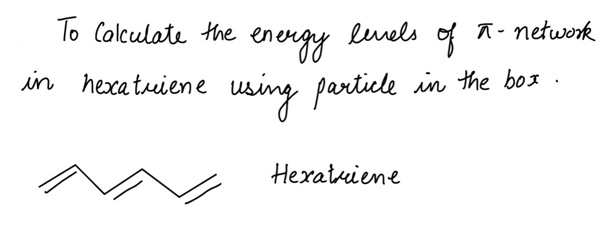 To Calculate the energy levels of π-network
in hexatriene using particle in the box.
Hexatriene